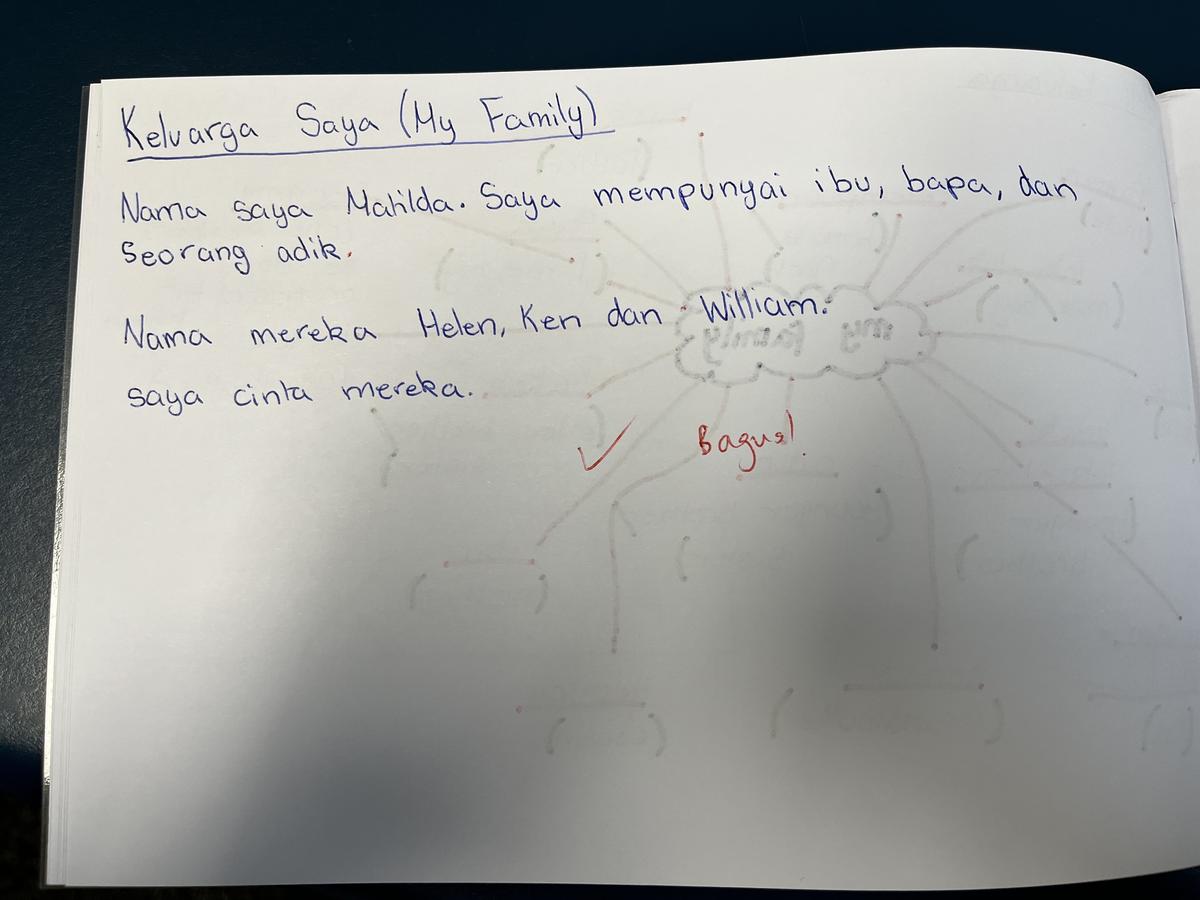 Keluarga Saya (My Family)
Nama saya Matilda. Saya mempunyai ibu, bapa, dan
seorang adik.
Nama mereka Helen, Ken dan William.
saya cinta mereka.
Bagus!
my family